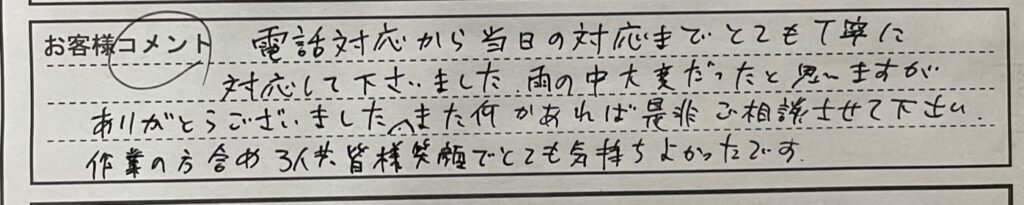 お客様コメント 電話対応から当日の対応までとても丁寧に
対応して下さいました.雨の中大変だったと思いますが
ありがとうございました。また何かあれば是非ご相談させて下さい.
作業の方含め3人共皆様笑顔でとても気持ちよかったです.